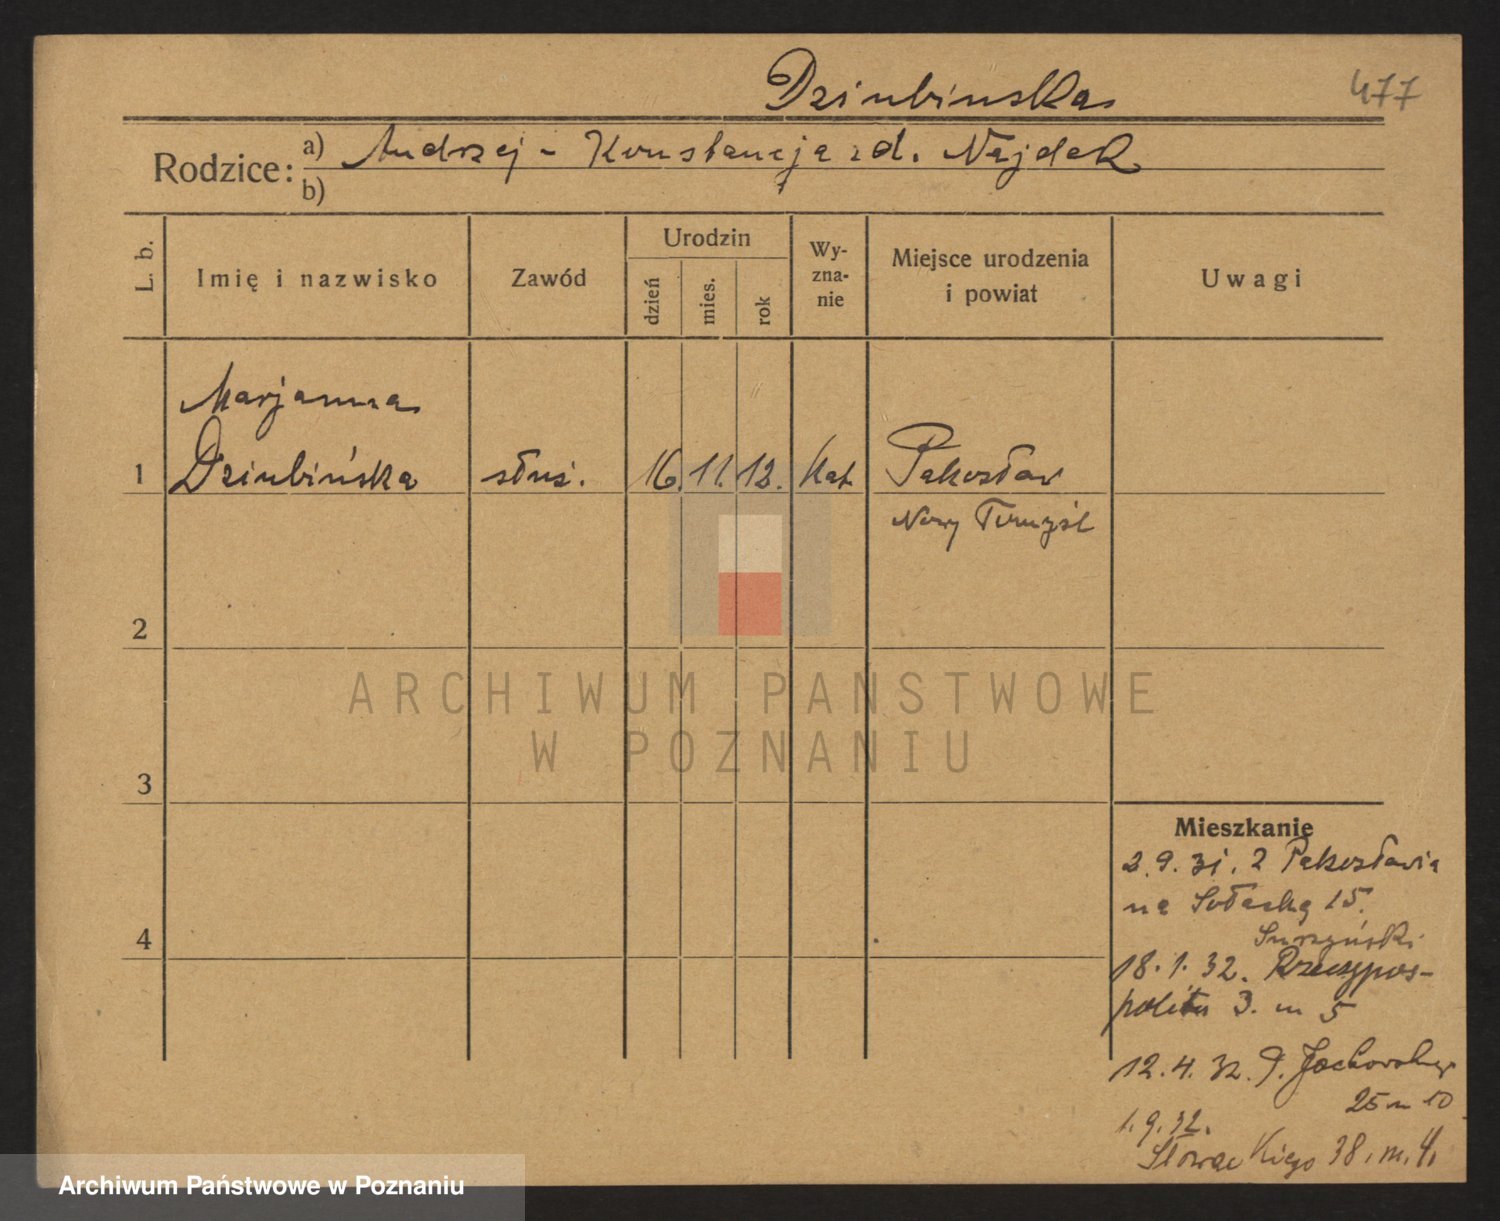 Dziubinska
477
Rodzice: a) Andrzej - Konstancja zd. Najdek
b)
L. b.
Imię i nazwisko
Zawód
Urodzin
dzień
mies.
rok
Wy-
zna-
nie
Miejsce urodzenia
i powiat
Uwagi
Marjanna
1 Dziubińska służ. 16. 11. 12. Kat. Pakosław
Nowy Tomyśl
2
ARCHIWUM PAŃSTWOWE
W POZNANIU
3
Mieszkanie
2.9.31. z Pakosławia
na Sołacką 15.
4
Surzyński
18.1.32. Rzeczypos-
polita 3. m 5
12.4.32. P.
25 m 10
1.9.32.
Słowackiego 38. m. 4.
Archiwum Państwowe w Poznaniu